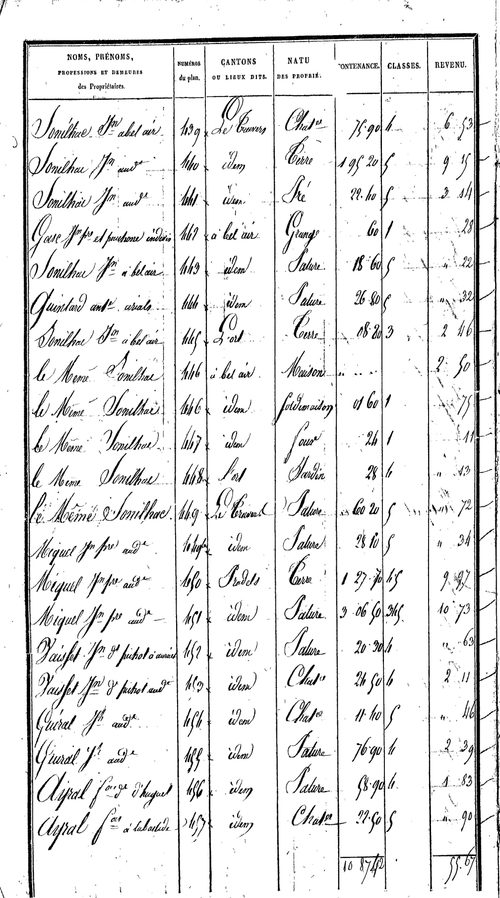 NOMS, PRÉNOMS, PROFESSIONS ET DEMEURES des Propriétaires. NUMÉROS du plan. CANTONS OU LIEUX DITS. NATU DES PROPRIÉ. CONTENANCE. CLASSES. REVENU.
Sonilhac Jn a bel air 439 Le Truvers Chatre 75.90 4 6 53
Sonilhac Jn aud. 440 idem Terre 1 95 20 5 9 15
Sonilhac Jn aud. 441 idem Pré 22.40 5 3 14
Gasc Jn pre et indivis 442 à bel air Grange 60 1 28
Sonilhac Jn à bel air 443 idem Pature 18.60 5 " 22
Quintard ant. 444 idem Pature 26.80 5 " 32
Sonilhac Jn à bel air 445 L'ort Terre 08.20 3 2 46
le Même Sonilhac 446 à bel air Maison " 2 50
le Même Sonilhac 446 idem 01 60 1 75
le Même Sonilhac 447 idem four 24 1 11
le Même Sonilhac 448 l'ort Jardin 28 4 " 13
le Même Sonilhac 449 Le Pature 60 20 5 72
Miquel Jn pre aud. idem Pature 28 10 5 " 34
Miquel Jn pre aud. 450 Pradels Terre 1 27.70 45 9 87
Miquel Jn pre aud. 451 idem Pature 3 06 50 345 10 73
Vaisset Jn dt pichot à 452 idem Pature 20.30 4 " 63
Vaisset Jn dt pichot aud. 453 idem Chatre 24 50 6 2 11
Guiral Jh aud. 454 idem Chatre 11.40 5 " 46
Guiral Jh aud. 455 idem Pature 76.90 4 2 39
Ayral fois dt d'huguet 456 idem Pature 58.90 4 1 83
Ayral fois à 457 idem Chatre 22.50 5 " 90
10 87 42 55.67